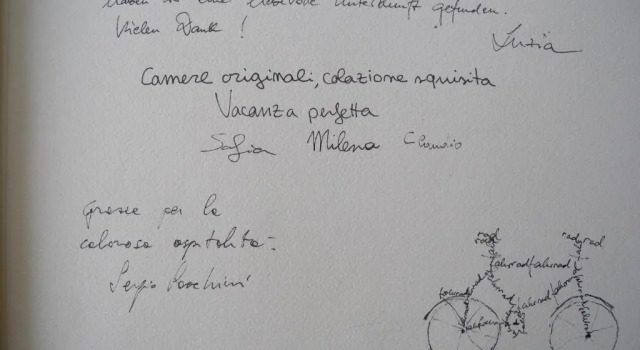 haben so eine liebevolle Unterkunft gefunden.
Vielen Dank !
Luzia
Camere originali, colazione squisita
Vacanza perfetta
Sofia Milena
Grazie per la
calorosa ospitalità
Sergio
rad rad
rad rad
fahrrad fahrrad
fahrrad fahrrad